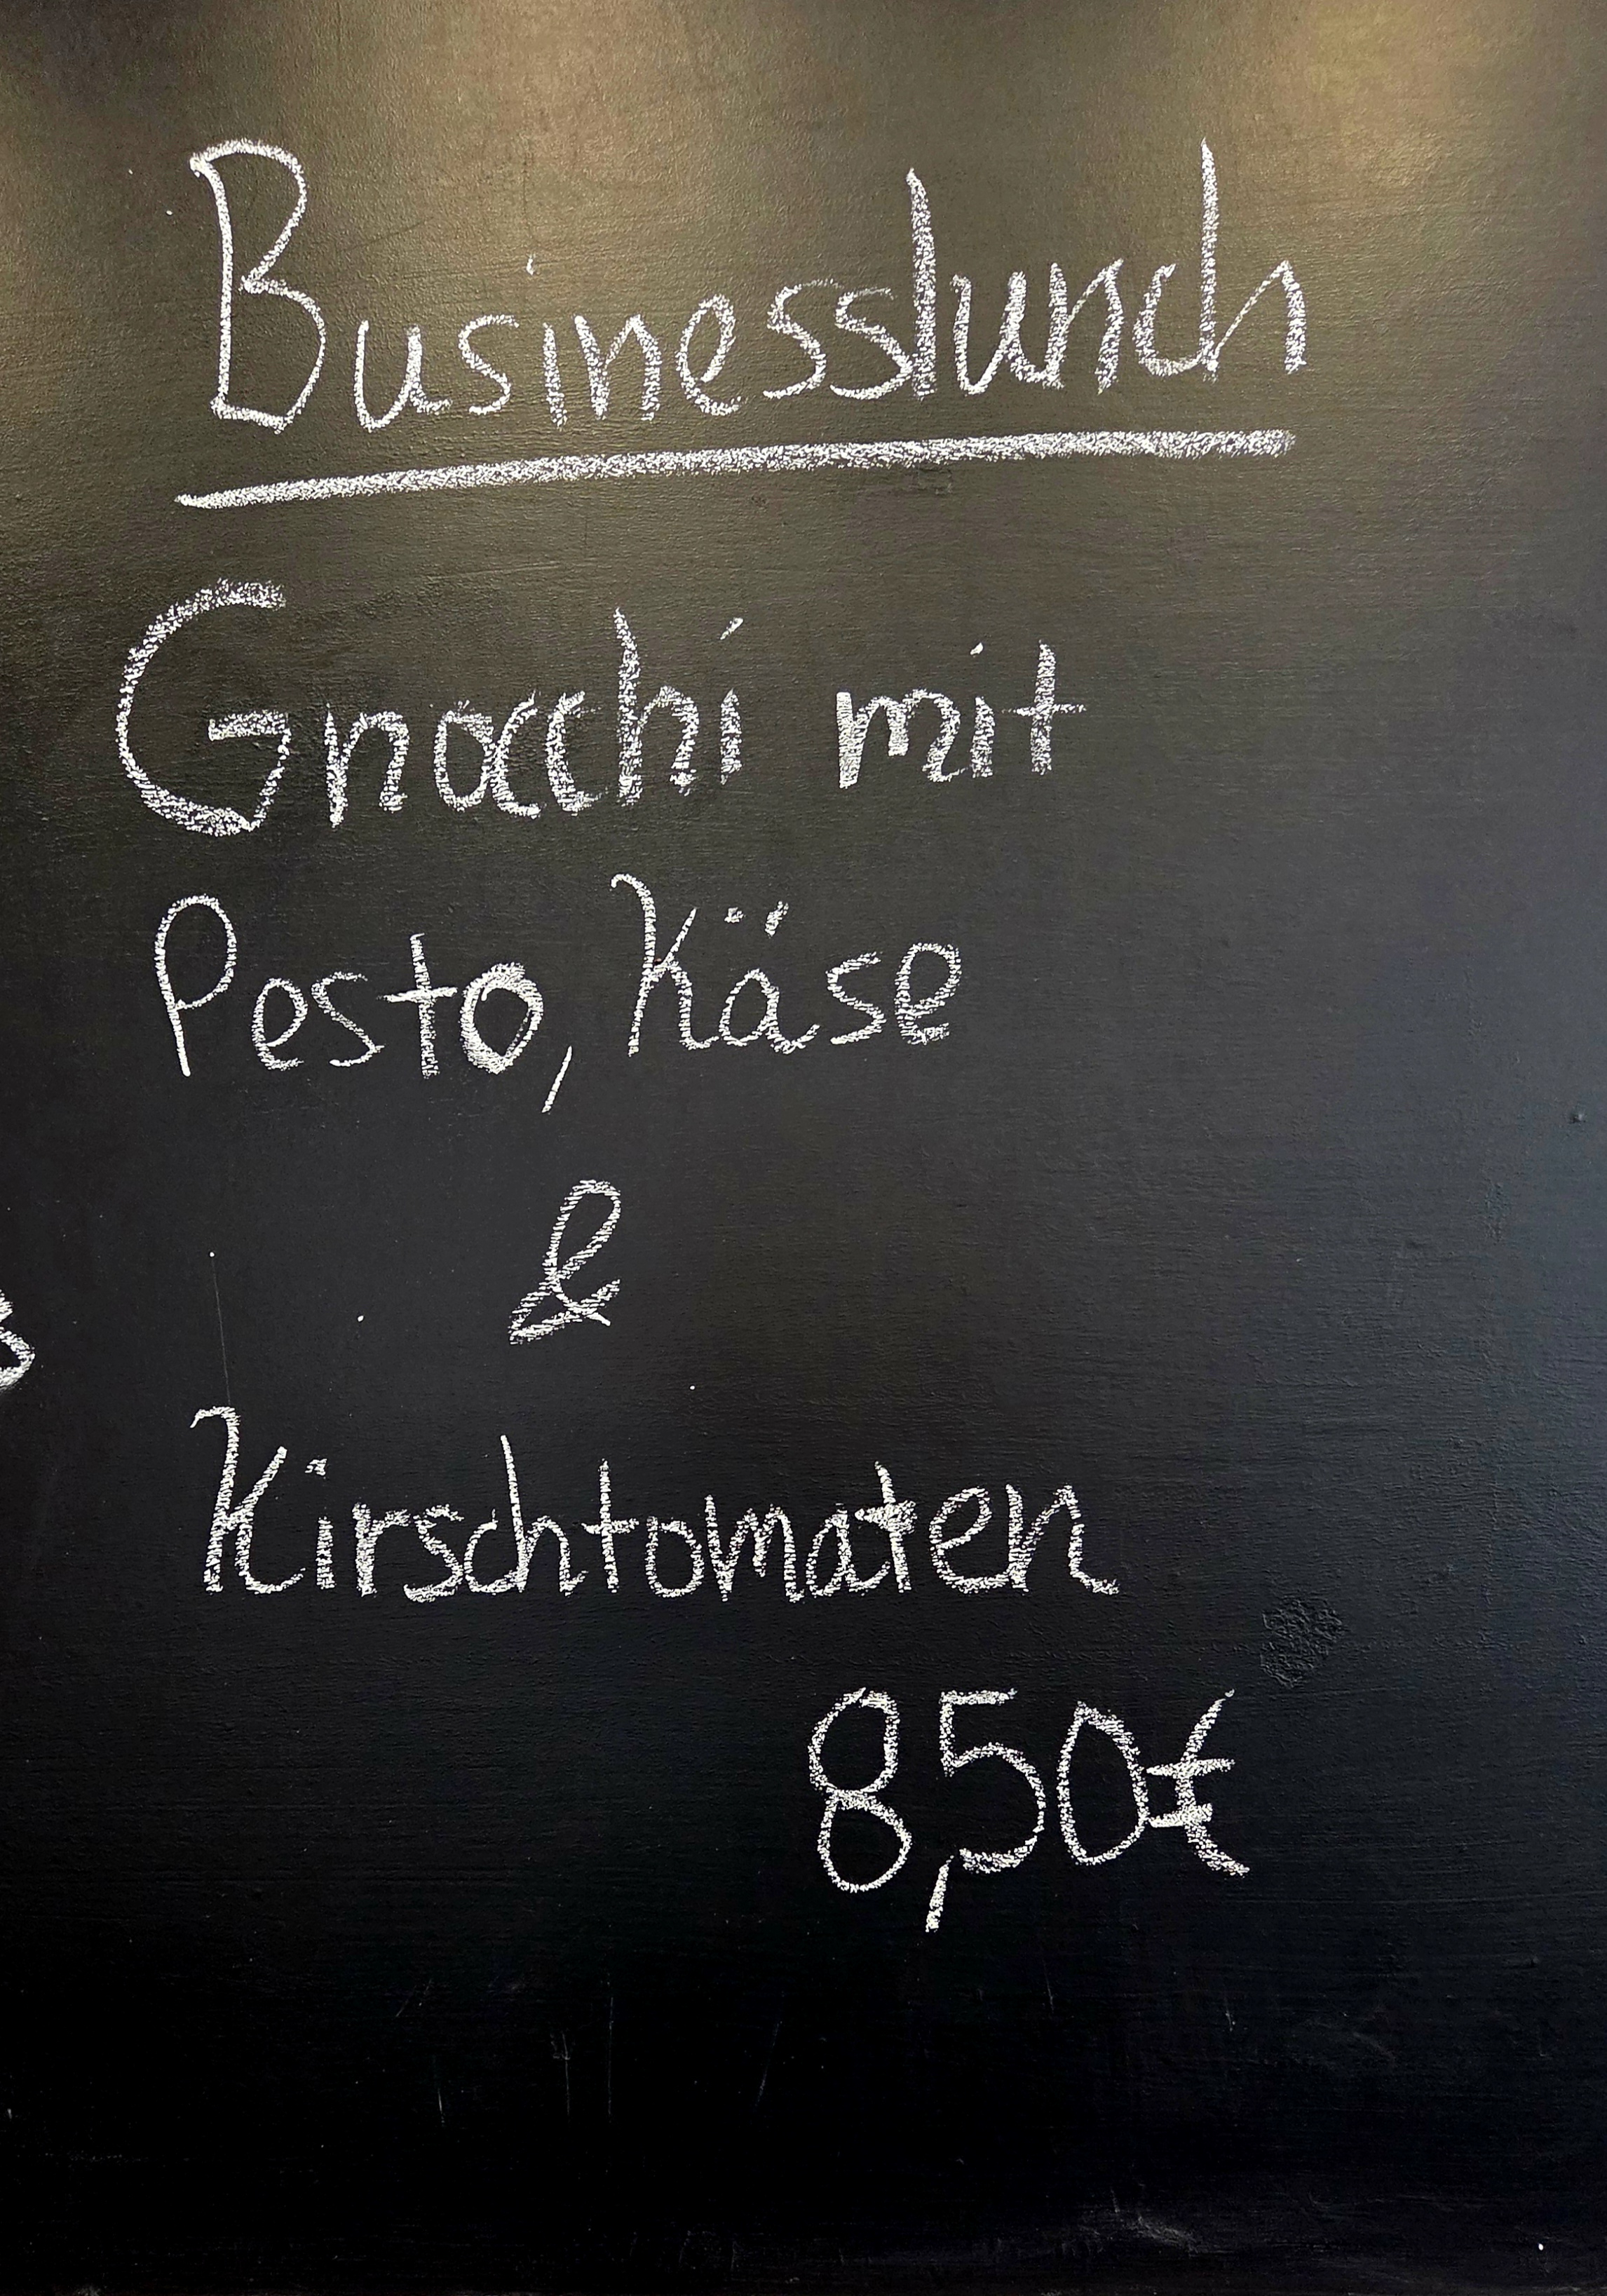 Businesslunch
Gnocchi mit
Pesto, Käse
&
Kirschtomaten
8,50€